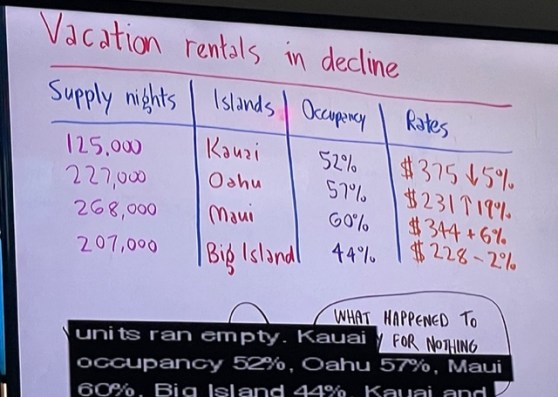 Vacation rentals in decline
Supply nights Islands Occupancy Rates
125,000 Kauai 52% $375 ↓5%
227,000 Oahu 57% $231 ↑19%
268,000 Maui 60% $344 +6%
207,000 Big Island 44% $228 -2%
WHAT HAPPENED TO
Y FOR NOTHING
units ran empty. Kauai
occupancy 52%, Oahu 57%, Maui
60%, Big Island 44%. Kauai and